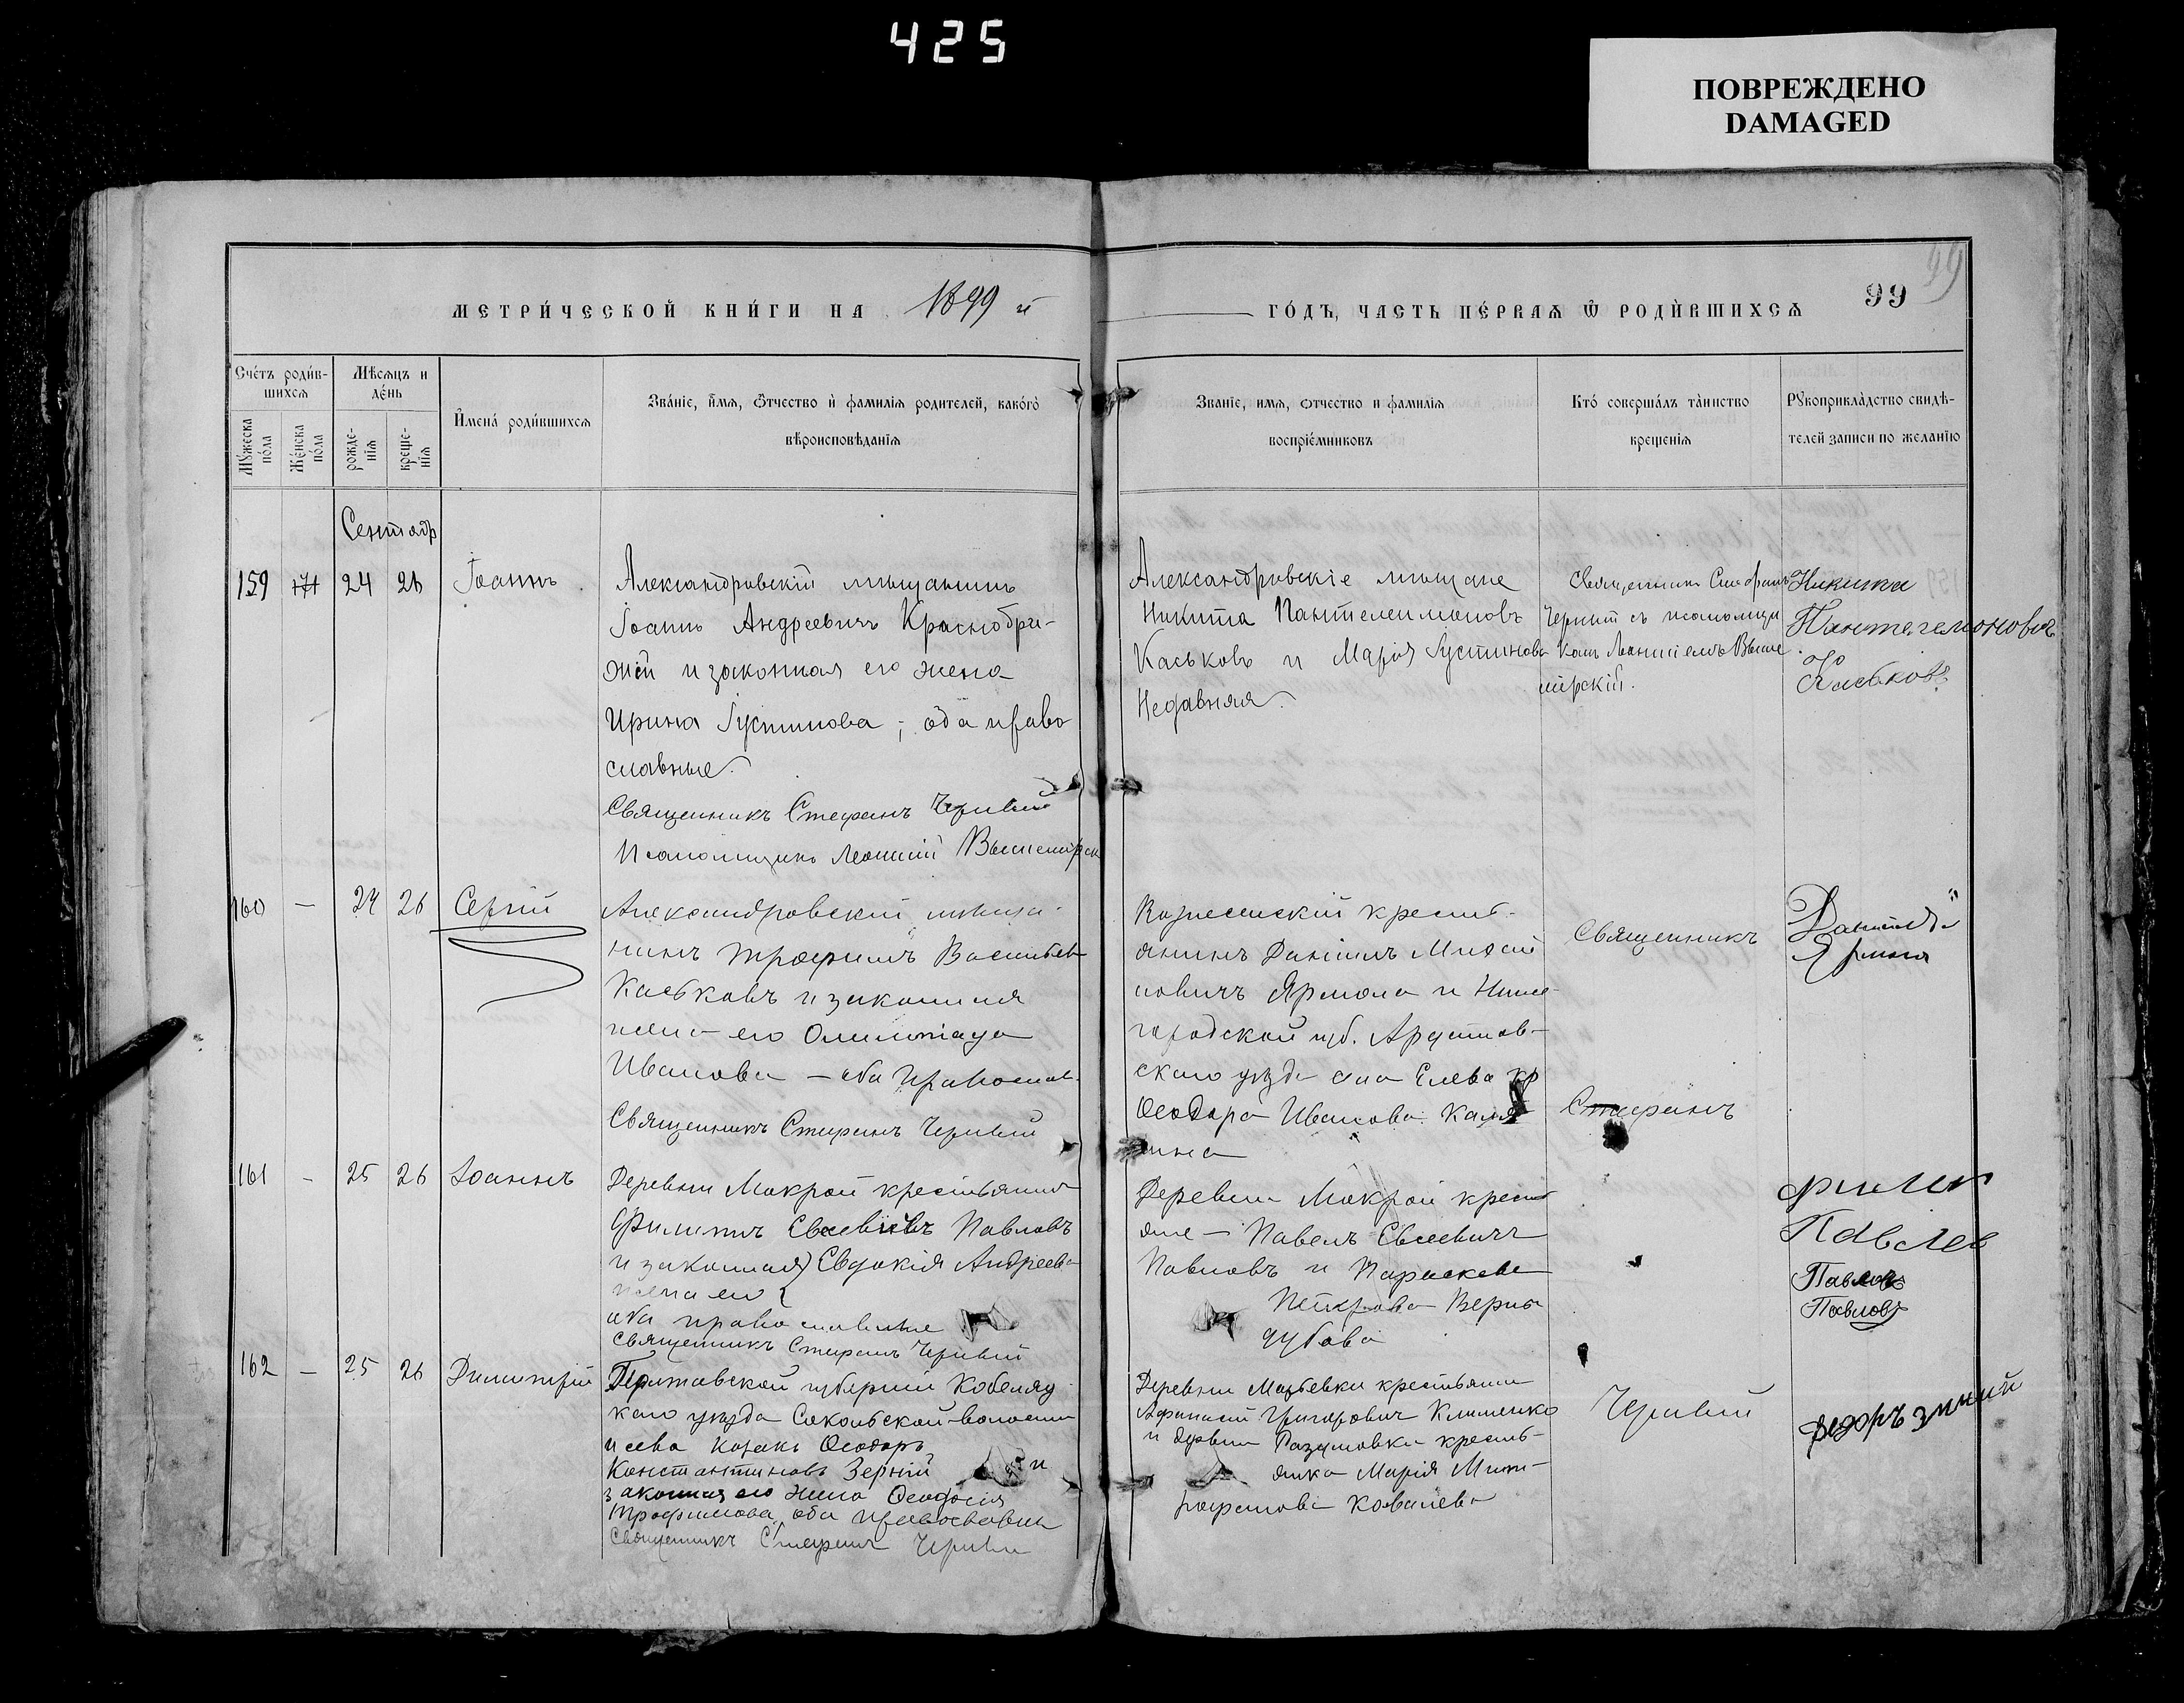 425
ПОВРЕЖДЕНО
DAMAGED
МЕТРИ́ЧЕСКОЙ КНИ́ГИ НА 1899 й
ГО́ДЪ, ЧАСТЬ ПЕ́РВАЯ Ѿ РОДИ́ВШИХСЯ
99
99
Сче́тъ роди́в-
шихся
Мѣсяцъ и
де́нь
Му́жеска
по́ла
Же́нска
по́ла
рожде-
нія
креще-
нія
И҆мена̀ роди́вшихся
Зва́ніе, и҆́мя, Ѻтчество и҆ фамилія родителей, како́го
вѣроисповѣданія
Званіе, имя, отчество и фамилія
воспріе́мниковъ
Кто́ соверша́лъ та́инство
крещенія
Рꙋкоприкла́дство свидѣ-
телей записи по желанію
Сентябр
159 171 24 26 Іоаннъ
Александровскій мѣщанинъ
Іоаннъ Андреевичъ Краснобри-
жій и законная его жена
Ирина Іустинова; оба право
славные.
Священникъ Стефанъ Чернвый
Псаломщикъ Леонтій
Александровскіе мѣщане
Никита Пантелеимоновъ
Каськовъ и Марія Іустинова
Недавняя.
Священникъ Стефанъ
съ псаломщи
комъ
мірскій.
Никита
Пантелемоновичъ
Каськовъ
160 — 24 26 Сергій
Александровскій мѣща-
нинъ Трофимъ Васильев
Каськовъ и законная
жена его Олимпіада
Иванова — оба православ.
Священникъ Стефанъ
Вознесенскій кресть-
янинъ Даніилъ
Ярмола и Ниже-
городской губ.
скаго уѣзда села Елева кр
Ѳеодора Иванова
Священникъ
Стефанъ
Даніилъ
Ярмола
161 - 25 26 Іоаннъ
Деревни Мокрой крестьянинъ
Филиппъ Евсевіевъ Павловъ
и законная Евдокія Андреева
жена его
оба православные
Священникъ Стефанъ
Деревни Мокрой кресть
яне — Павелъ Евсеевичъ
Павловъ и Параскева
Петрова
дубова
Павлов
Павловъ
Павловъ
162 — 25 26 Димитрій
Полтавской губерніи Кобеляц
каго уѣзда Сокольской волости
и села козакъ Ѳеодоръ
Константиновъ Зерній и
законная его жена Ѳеодосія
Трофимова, оба православны
Священникъ Стефанъ
Деревни крестьянинъ
Афанасій Григоровичъ Клименко
и деревни Разумовки кресть-
янка Марія Мит-
рофанова Ковалева
Федоръ